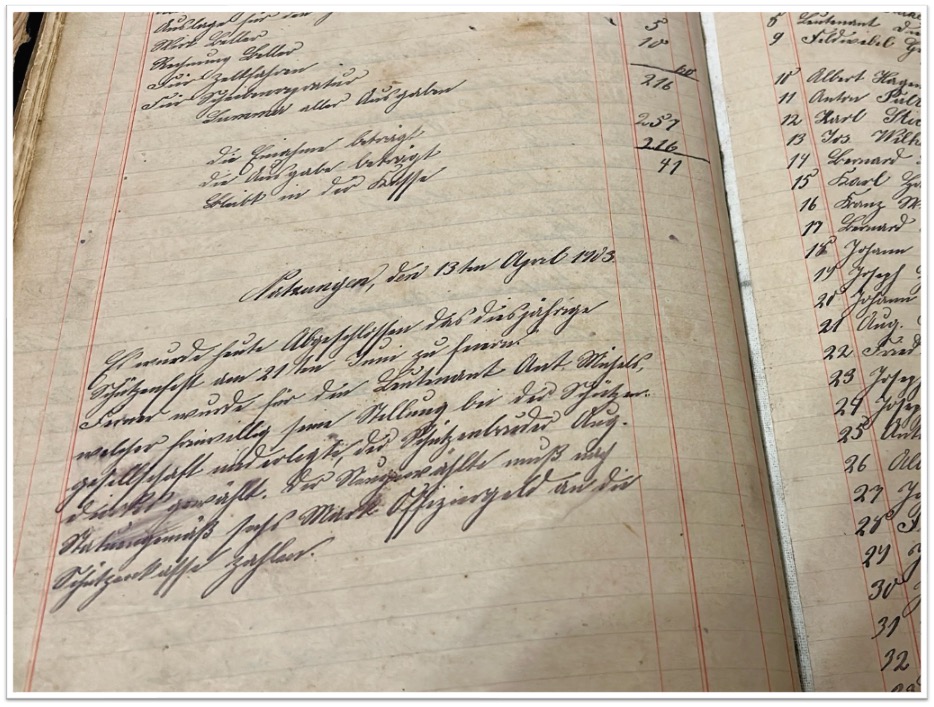 Auslage für den
Wirt Beller
Rechnung Beller
Für Zeltfahren
Für Scheibenreparatur
Summa aller Ausgaben
5
10
60
216
Die Einahme beträgt
257
die Ausgabe beträgt
216
bleibt in der Kasse
41
Natzungen, den 13ten April 1903.
Es wurde heute Abgeschlossen das diesjährige
Schützenfest am 21ten Juni zu feiern.
Ferner wurde für den Leutenant Ant. Michels,
welcher freiwillig seine Stellung bei der Schützen-
gesellschaft niederlegte der Schützenbruder Aug.
gewählt. Der Neugewählte muß nach
Statutengemäß sechs Mark Offiziergeld an die
Schützenkasse zahlen.
8 Leutenant
9 Feldwebel
10 Albert Hagen
11 Anton
12 Karl
13 Jos. Wilh
14 Bernard
15 Karl
16 Franz
17 Bernard
18 Johann
19 Joseph
20 Johann
21 Aug.
22 Fried
23 Joseph
24 Joseph
25 Ant
26
27
28
29
30
31
32